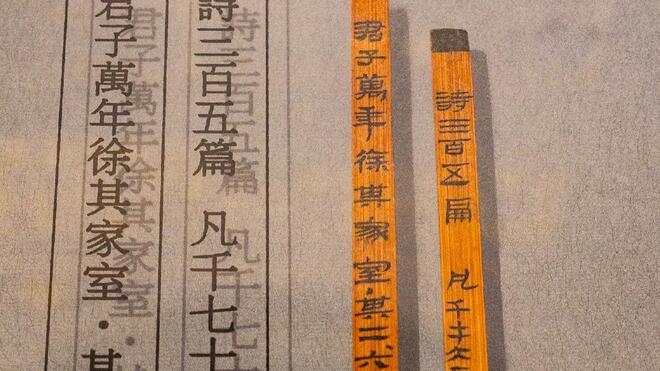 詩三百五扁 凡千
君子萬年徐其家室·其
詩三百五篇 凡千七十
君子萬年徐其家室·其